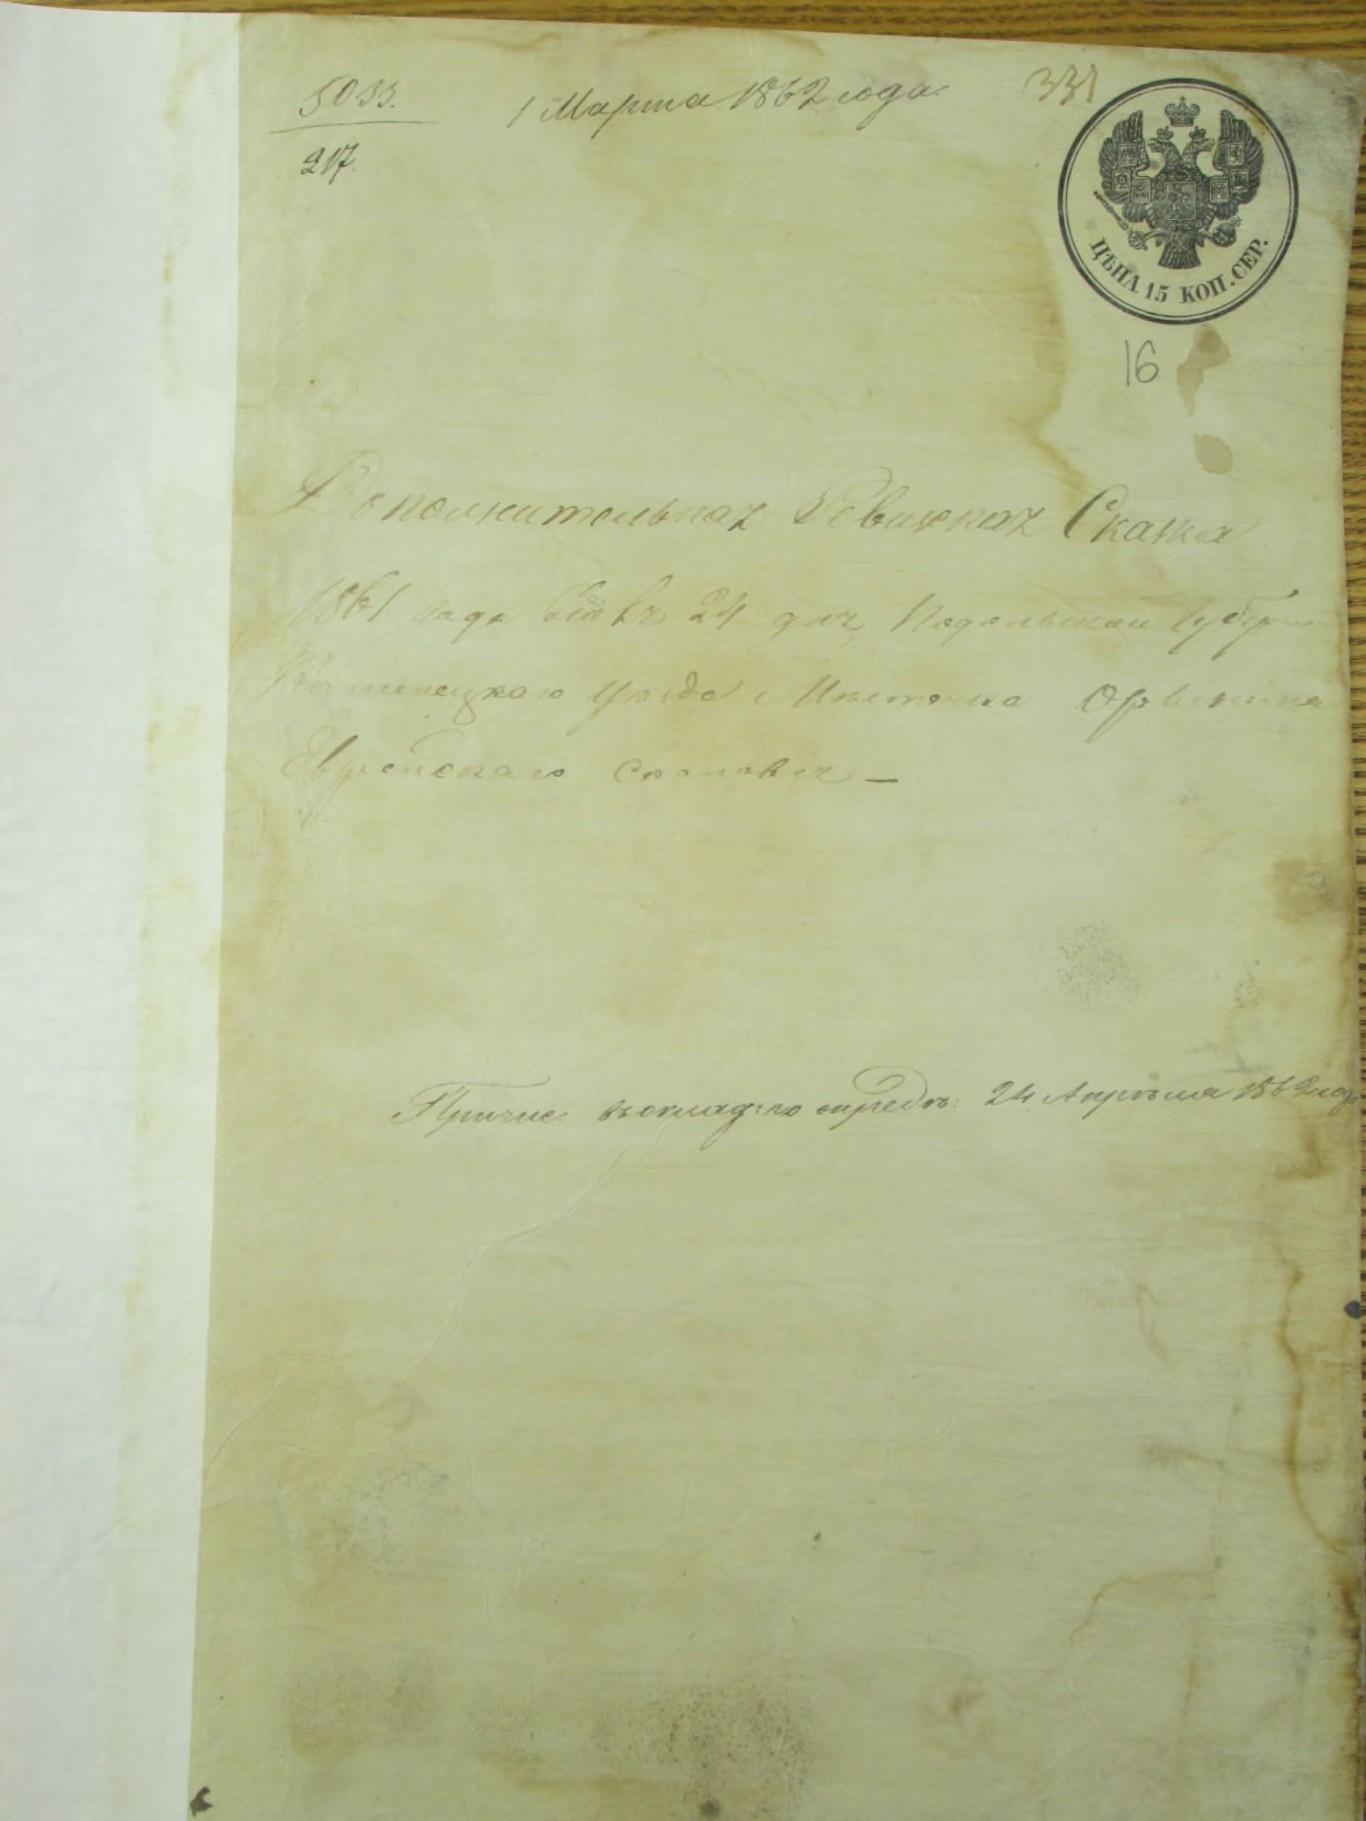 5033.
217.
1 Марта 1862 года.
331
ЦѢНА 15 КОП. СЕР.
16
Дополнительная Ревизская Сказка
1861 года 24 дня, Подольской Губерніи
Каменецкаго Уѣзда Мѣстечка Орынина
Еврейскаго сословія —
Причис: въ окладъ: по опредѣ: 24 Апрѣля 1862 год